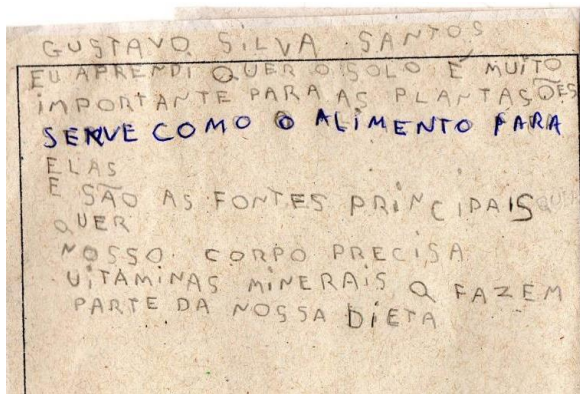 GUSTAVO SILVA SANTOS
EU APRENDI QUER O SOLO É MUITO
IMPORTANTE PARA AS PLANTASÕES
SERVE COMO O ALIMENTO PARA
ELAS
E SÃO AS FONTES PRINCIPAIS QUER
QUER
NOSSO CORPO PRECISA
VITAMINAS MINERAIS Q FAZEM
PARTE DA NOSSA DIETA